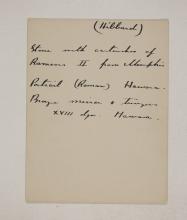 (Hibbard)
Stone with cartouches of
Rameses II from Memphis
Portrait (Roman) Hawara
Bronze mirror &
XVIII dyn. Hawara.